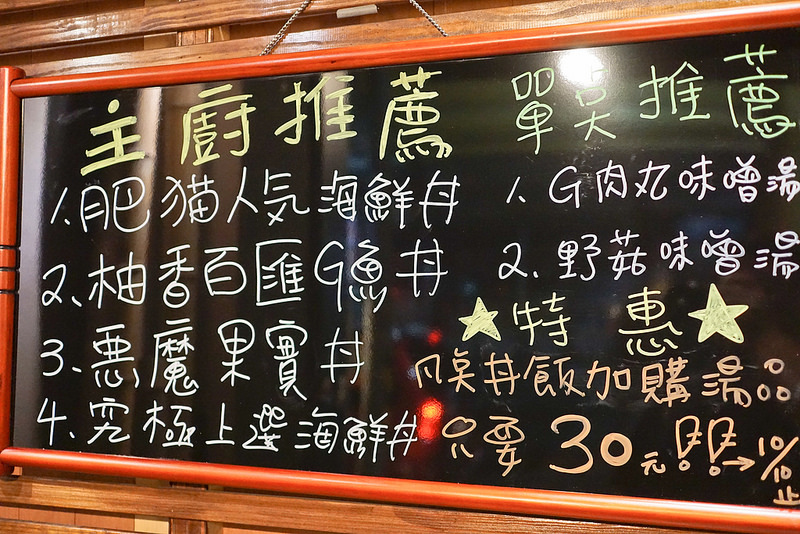 主廚推薦
1.肥猫人気海鮮丼
2.柚香百匯G魚丼
3.悪魔果實丼
4.究極上選海鮮丼
單點推薦
1.G肉丸味噌湯
2.野菇味噌湯
★特惠★
凡點丼飯加購湯品
只要30元!!→10/10止